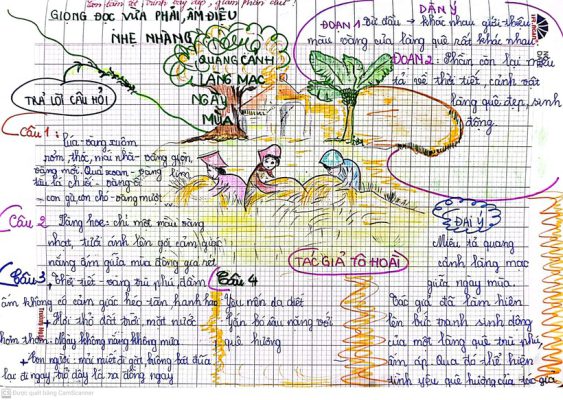 GIỌNG ĐỌC VỪA PHẢI, ÂM ĐIỆU
NHẸ NHÀNG
QUANG CẢNH
LÀNG MẠC
NGÀY
MÙA
DÀN Ý
ĐOẠN 1: Từ đầu → khác nhau giới thiệu
màu vàng của làng quê rất khác nhau.
ĐOẠN 2: Phần còn lại miêu
tả về thời tiết, cảnh vật
làng quê đẹp, sinh
động.
TRẢ LỜI CÂU HỎI
Câu 1:
Lúa - vàng xuộm
rơm, thóc, mái nhà - vàng giòn,
vàng mới. Quả xoan - vàng lịm
tàu lá chuối - vàng ối
con gà, con chó - vàng mượt
Câu 2
Vàng hoe: chỉ một màu vàng
nhạt, tươi ánh lên gợi cảm giác
nắng ấm giữa mùa đông giá rét
Câu 3
+ Thời tiết - vàng trù phú đầm
ấm không có cảm giác héo tàn hanh hao
+ Hơi thở đất trời, mặt nước
thơm thơm. Ngày không nắng không mưa
+ Con người: mải miết đi gặt, không bát đũa
lại đi ngay, trở dậy là ra đồng ngay
Câu 4
Yêu mến da diết
Gắn bó sâu nặng với
quê hương
TÁC GIẢ TÔ HOÀI
ĐẠI Ý
Miêu tả quang
cảnh làng mạc
giữa ngày mùa.
Tác giả đã làm hiện
lên bức tranh sinh động
của một làng quê trù phú,
ấm áp. Qua đó thể hiện
tình yêu quê hương của tác giả
CS Được quét bằng CamScanner